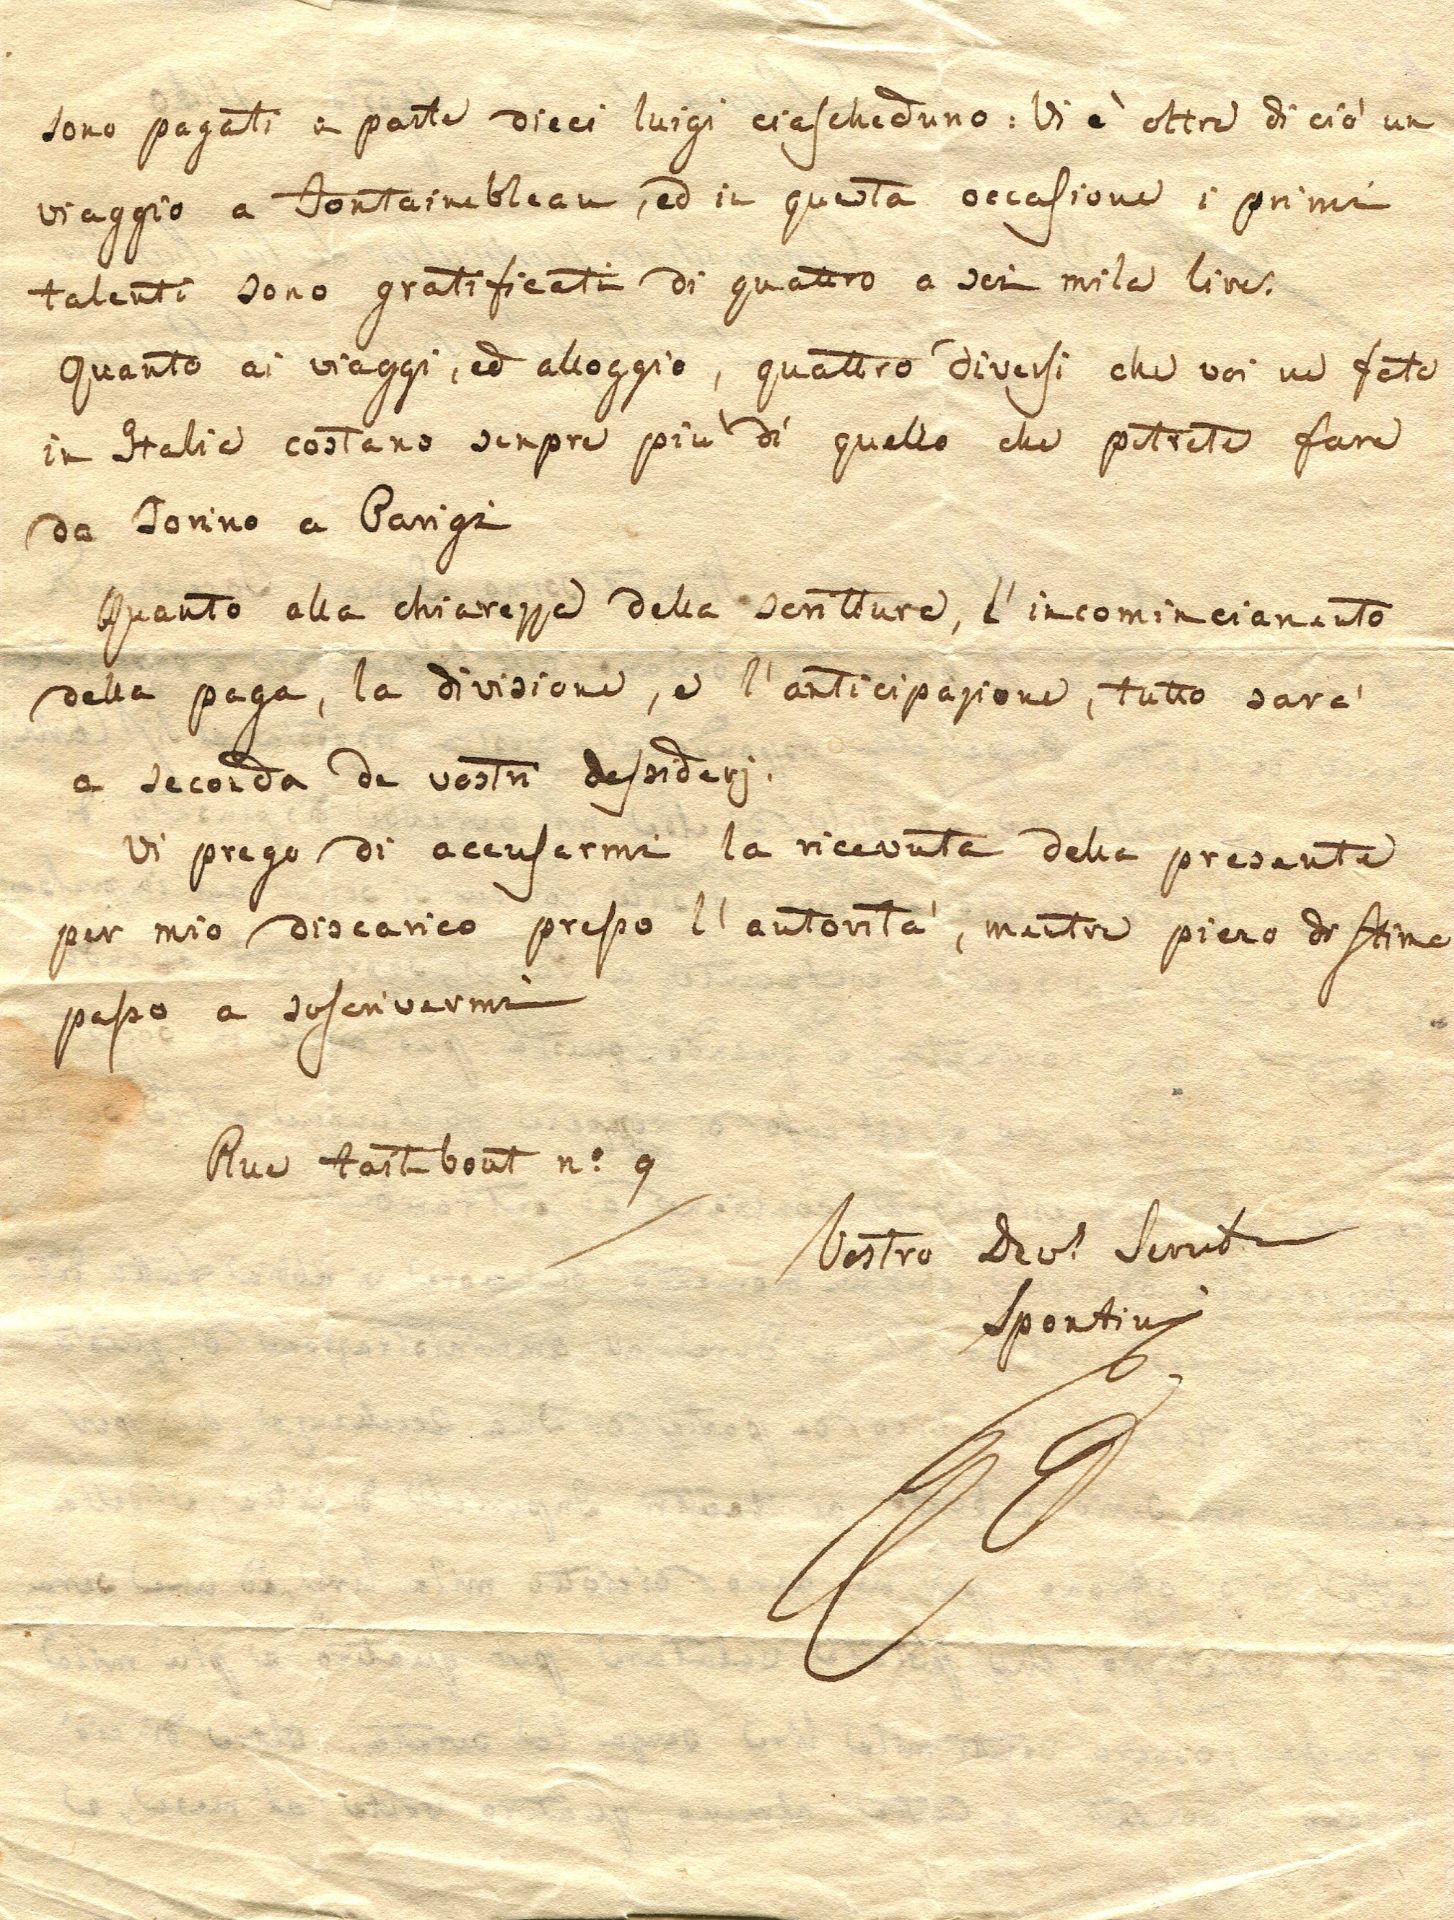 sono pagati a parte dieci luigi ciascheduno: Vi è oltre di ciò un
viaggio a Fontainebleau, ed in questa occasione i primi
talenti sono gratificati di quattro a sei mila lire.
Quanto ai viaggi, ed alloggio, quattro diversi che voi ne fate
in Italia costano sempre più di quello che potrete fare
da Torino a Parigi
Quanto alla chiarezza della scrittura, l'incominciamento
della paga, la divisione, e l'anticipazione, tutto sarà
a seconda de vostri desiderj.
Vi prego di accusarmi la ricevuta della presente
per mio discarico presso l'autorità, mentre pieno di stima
passo a soscrivermi
Rue taitbout n.º 9
Vostro Dev.º Servit
Spontini